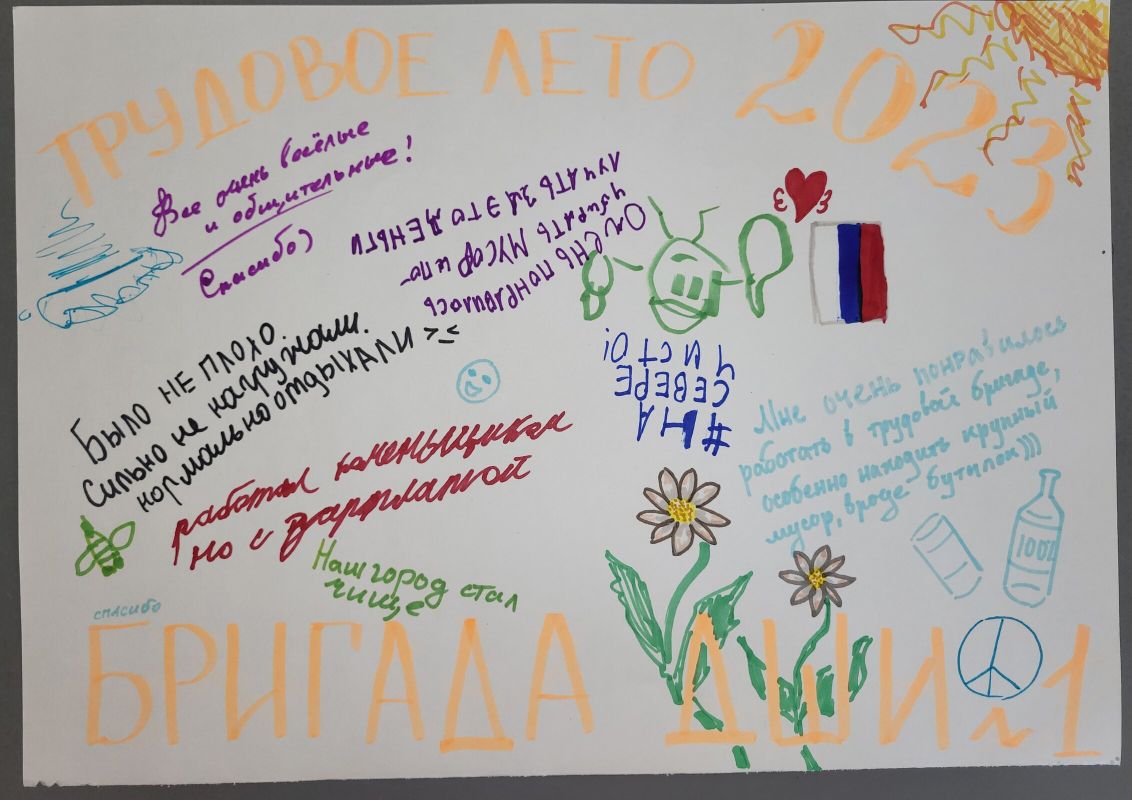 ТРУДОВОЕ ЛЕТО 2023
Все очень весёлые
и общительные!
Спасибо)
Очень понравилось
убирать мусор и по-
лучать за это деньги
Было не плохо.
Сильно не нагружали.
нормально отдыхали >_<
#НА
СЕВЕРЕ
ЧИСТО!
Мне очень понравилось
работать в трудовой бригаде,
особенно находить крупный
мусор, вроде бутылок)))
100%
работал каменьщиком
но с зарплатой
Наш город стал
чище
спасибо
БРИГАДА ДШИ №1